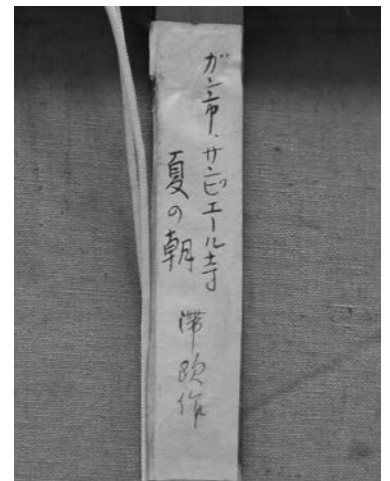 ガン市、サンピエール寺
夏の朝 滞欧作